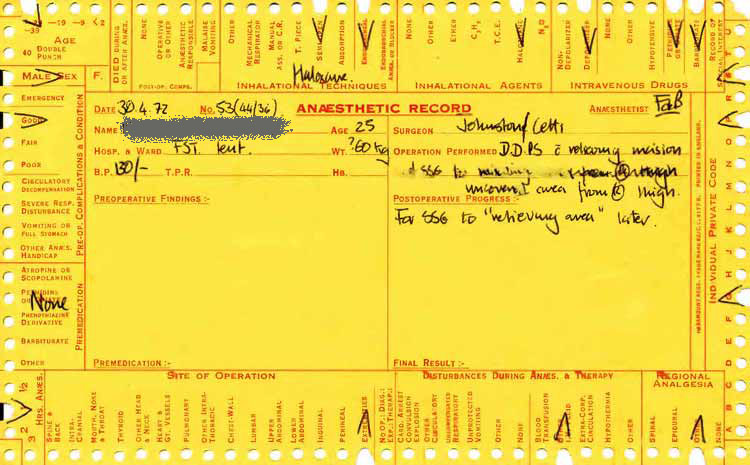 -39
-19 -9 <2
AGE
40 DOUBLE PUNCH
DIED DURING OR AFTER ANÆS.
NONE
OPERATIVE OR OTHER
ANÆSTHETIC RESPONSIBLE
MALAISE VOMITING
OTHER
MECHANICAL RESPIRATOR
MANUAL ASS. OR C.R.
T. PIECE
ABSORPTION
NONE
OTHER
ETHER
C₂H₄
T.C.E.
N₂O
NON-DEPOLARIZER
DEPOLARIZER
NONE
OTHER
HYPOTENSIVE
RECORD OF SPECIAL INTEREST
Halosane
MALE SEX F.
POST-OP. COMPS.
INHALATIONAL TECHNIQUES
INHALATIONAL AGENTS
INTRAVENOUS DRUGS
EMERGENCY
GOOD
FAIR
POOR
CIRCULATORY DECOMPENSATION
SEVERE RESP. DISTURBANCE
VOMITING OR FULL STOMACH
OTHER ANÆS. HANDICAP
ATROPINE OR SCOPOLAMINE
None
PHENOTHIAZINE DERIVATIVE
BARBITURATE
OTHER
PRE-OP. COMPLICATIONS & CONDITION
PREMEDICATION
DATE 30.4.72 No. 53(44/36) ANÆSTHETIC RECORD ANÆSTHETIST FaB
NAME AGE 25 SURGEON Johnstone/Cetti
HOSP. & WARD FST tent. WT. 60 kg OPERATION PERFORMED D.D.P.S c relieving incision
B.P. 130/- T.P.R. HB. SSG to through
uncovered area from (L) thigh.
PREOPERATIVE FINDINGS :- POSTOPERATIVE PROGRESS :-
For SSG to "relieving area" later.
PREMEDICATION :- FINAL RESULT :-
PRINTED IN ENGLAND.
INDIVIDUAL PRIVATE CODE
A B C D E F G H I J K L M N O
SITE OF OPERATION
DISTURBANCES DURING ANÆS. & THERAPY
REGIONAL ANALGESIA
½ 1 2 3 HRS. ANÆS.
SPINE & BACK
INTRA-CRANIAL
MOUTH, NOSE & THROAT
THYROID
OTHER HEAD & NECK
HEART & GT. VESSELS
PULMONARY
OTHER INTRA-THORACIC
CHEST-WALL
LUMBAR
UPPER ABDOMINAL
LOWER ABDOMINAL
INGUINAL
PERINEAL
EXTREMITIES
NO OP. DIAG.: EXP.: THERAP.:
CARD. ARREST CONVULSION EXPLOSION
OTHER CIRCULATORY
UNPROTECTED VOMITING
OTHER
NONE
BLOOD TRANSFUSION
EXTRA-CORP. CIRCULATION
HYPOTHERMIA
OTHER
SPINAL
EPIDURAL
NONE